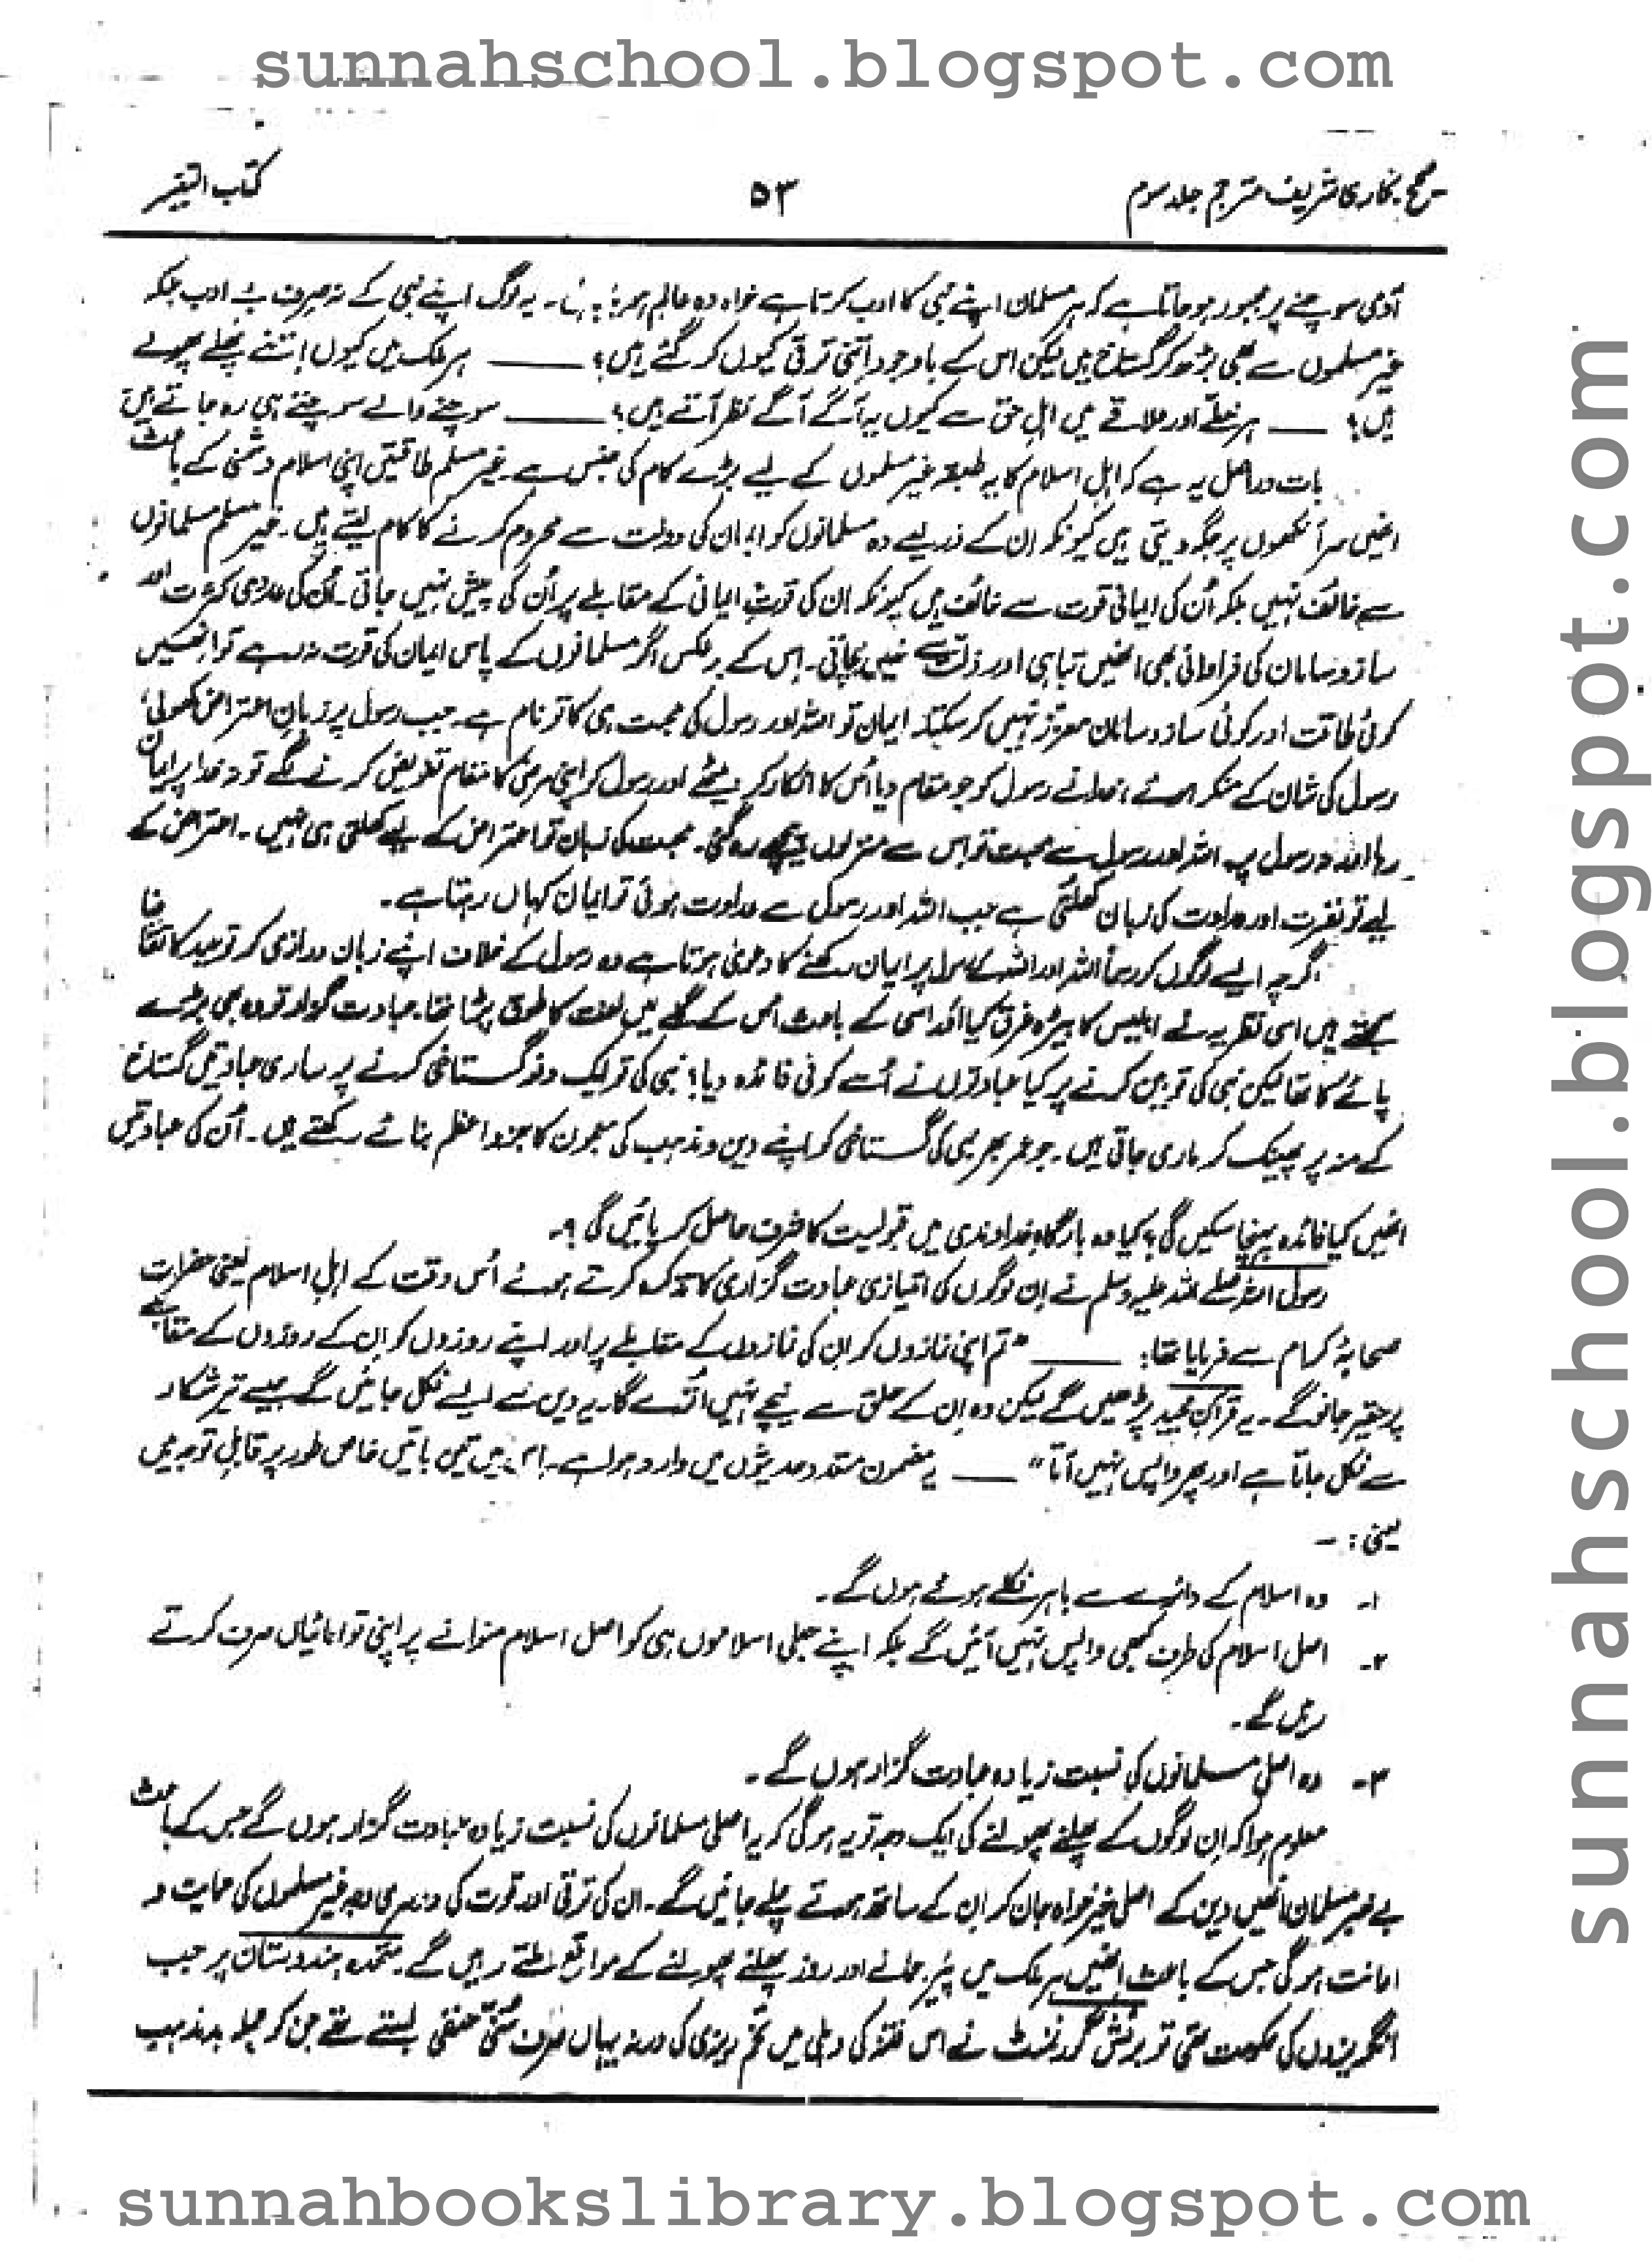 sunnahschool.blogspot.com
صحیح بخاری شریف مترجم جلد سوم ۵۳ کتاب التفسیر
آدمی سوچنے پر مجبور ہو جاتا ہے کہ ہر مسلمان اپنے نبی کا ادب کرتا ہے خواہ وہ عالم ہو یا۔ یہ لوگ اپنے نبی کے نہ صرف بے ادب بلکہ
غیر مسلموں سے بھی بڑھ کر گستاخ ہیں لیکن اس کے باوجود اتنی ترقی کیوں کر گئے ہیں؟ ــــــ ہر ملک میں کیوں اتنے پھلے پھولے
ہیں؟ ــــــ ہر خطے اور علاقے میں اہلِ حق سے کیوں یہ آگے آگے نظر آتے ہیں؟ ــــــ سوچنے والے سوچتے ہی رہ جاتے ہیں
بات دراصل یہ ہے کہ اہلِ اسلام کا یہ طبقہ غیر مسلموں کے لیے بڑے کام کی جنس ہے۔ غیر مسلم طاقتیں اپنی اسلام دشمنی کے باعث
انھیں سر آنکھوں پر جگہ دیتی ہیں کیونکہ ان کے ذریعے وہ مسلمانوں کو ایمان کی دولت سے محروم کرنے کا کام لیتے ہیں۔ غیر مسلم مسلمانوں
سے خائف نہیں بلکہ اُن کی ایمانی قوت سے خائف ہیں کیونکہ ان کی قوتِ ایمانی کے مقابلے پر اُن کی پیش نہیں جاتی۔ اُن کی عددی کثرت اور
ساز و سامان کی فراوانی بھی انھیں تباہی اور ذلت سے نہیں بچاتی۔ اس کے برعکس اگر مسلمانوں کے پاس ایمان کی قوت نہ رہے تو انھیں
کوئی طاقت اور کوئی ساز و سامان معزز نہیں کر سکتا۔ ایمان تو اللہ اور رسول کی محبت ہی کا تو نام ہے۔ جب رسول پر زبانِ اعتراض کھولی،
رسول کی شان کے منکر ہوئے، خدا نے رسول کو جو مقام دیا اُس کا انکار کر بیٹھے اور رسول کو اپنی مرضی کا مقام تفویض کرنے لگے تو نہ خدا پر ایمان
رہا اور نہ رسول پر۔ اللہ اور رسول سے محبت تو اس سے منزلوں پیچھے رہ گئی۔ محبت کی زبان تو اعتراض کے لیے کھلتی ہی نہیں۔ اعتراض کے
لیے تو نفرت اور عداوت کی زبان کھلتی ہے جب اللہ اور رسول سے عداوت ہوئی تو ایمان کہاں رہتا ہے۔
گرچہ ایسے لوگوں کو رسماً اللہ اور اللہ کے رسول پر ایمان رکھنے کا دعویٰ ہوتا ہے وہ رسول کے خلاف اپنے زبان درازی کو توحید کا تقاضا
سمجھتے ہیں اسی نظریہ نے ابلیس کا بیڑہ غرق کیا اور اسی کے باعث اُس کے گلے میں لعنت کا طوق پڑا تھا۔ عبادت گزار تو وہ بھی بڑے
پائے کا تھا لیکن نبی کی توہین کرنے پر کیا عبادتوں نے اُسے کوئی فائدہ دیا؟ نبی کی تو ایک دفعہ گستاخی کرنے پر ساری عبادتیں گستاخ
کے منہ پر پھینک کر ماری جاتی ہیں۔ جو عمر بھر نبی کی گستاخی کو اپنے دین و مذہب کی معجون کا جزوِ اعظم بنائے رکھتے ہیں۔ اُن کی عبادتیں
انھیں کیا فائدہ پہنچا سکیں گی؟ کیا وہ بارگاہِ خداوندی میں قبولیت کا شرف حاصل کر پائیں گی؟۔
رسول اللہ صلے اللہ علیہ وسلم نے ان لوگوں کی امتیازی عبادت گزاری کا تذکرہ کرتے ہوئے اُس وقت کے اہلِ اسلام یعنی حضرات
صحابۂ کرام سے فرمایا تھا: ــــــ "تم اپنی نمازوں کو ان کی نمازوں کے مقابلے پر اور اپنے روزوں کو ان کے روزوں کے مقابلے
پر حقیر جانو گے۔ یہ قرآن مجید پڑھیں گے لیکن وہ ان کے حلق سے نیچے نہیں اترے گا۔ یہ دین سے ایسے نکل جائیں گے جیسے تیر شکار
سے نکل جاتا ہے اور پھر واپس نہیں آتا" ــــــ یہ مضمون متعدد حدیثوں میں وارد ہوا ہے۔ اس میں تین باتیں خاص طور پر قابلِ توجہ ہیں
یعنی: ۔
۱۔ وہ اسلام کے دائرے سے باہر نکلے ہوئے ہوں گے۔
۲۔ اصل اسلام کی طرف کبھی واپس نہیں آئیں گے بلکہ اپنے جعلی اسلاموں ہی کو اصل اسلام منوانے پر اپنی توانائیاں صرف کرتے
رہیں گے۔
۳۔ وہ اصلی مسلمانوں کی نسبت زیادہ عبادت گزار ہوں گے۔
معلوم ہوا کہ ان لوگوں کے پھلنے پھولنے کی ایک وجہ تو یہ ہو گی کہ یہ اصلی مسلمانوں کی نسبت زیادہ عبادت گزار ہوں گے جس کے باعث
بے خبر مسلمان انھیں دین کے اصلی خیر خواہ جان کر ان کے ساتھ ہوتے چلے جائیں گے۔ ان کی ترقی اور قوت کی دوسری وجہ غیر مسلموں کی حمایت و
اعانت ہو گی جس کے باعث انھیں ہر ملک میں پَیر جمانے اور روز پھلنے پھولنے کے مواقع ملتے رہیں گے۔ متحدہ ہندوستان پر جب
انگریزوں کی حکومت تھی تو برٹش گورنمنٹ نے اس فتنہ کی دہلی میں تخم ریزی کی ورنہ یہاں صرف سُنی حنفی بستے تھے جن کو جملہ بد مذہب
sunnahbookslibrary.blogspot.com
sunnahschool.blogspot.com